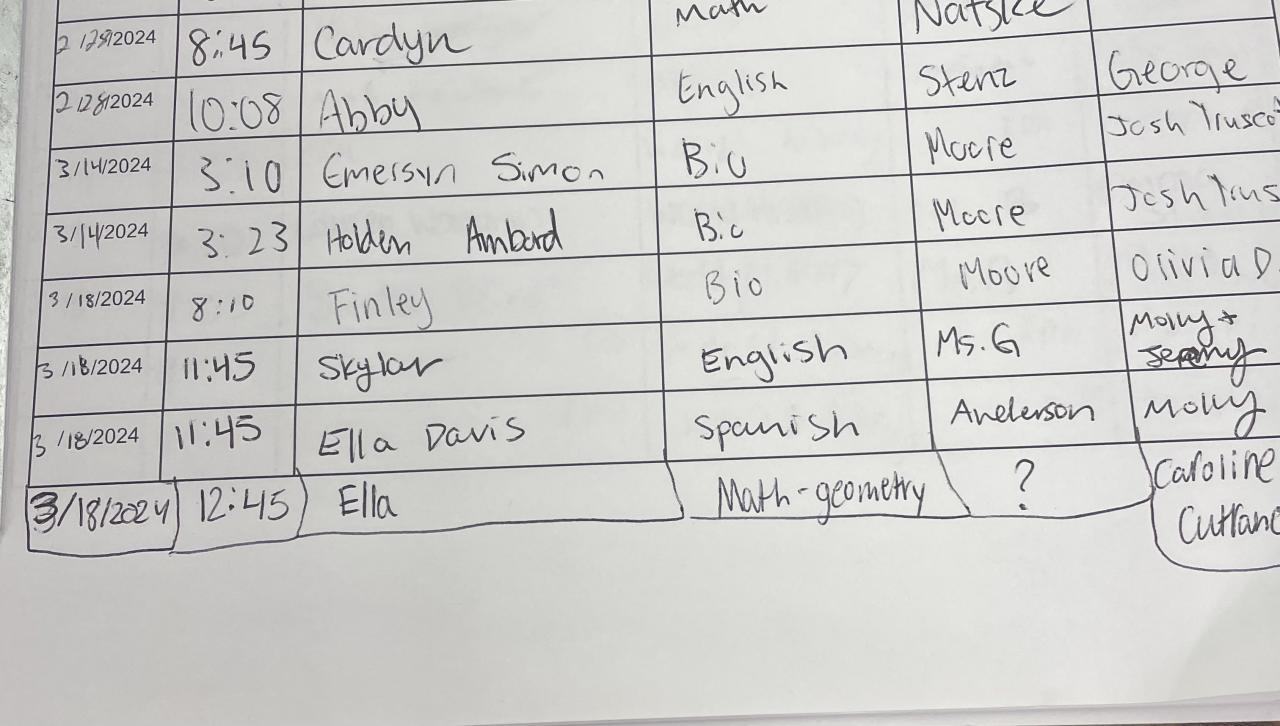 2/28/2024 8:45 Carolyn Math Natske
2/28/2024 10:08 Abby English Stenz George
3/14/2024 3:10 Emersyn Simon Bio Moore Josh Trusco
3/14/2024 3:23 Holden Ambord Bio Moore Josh Trus
3/18/2024 8:10 Finley Bio Moore Olivia D.
3/18/2024 11:45 Skylar English Ms. G Molly + Jeremy
3/18/2024 11:45 Ella Davis Spanish Anderson Molly
3/18/2024 12:45 Ella Math-geometry ? Caroline